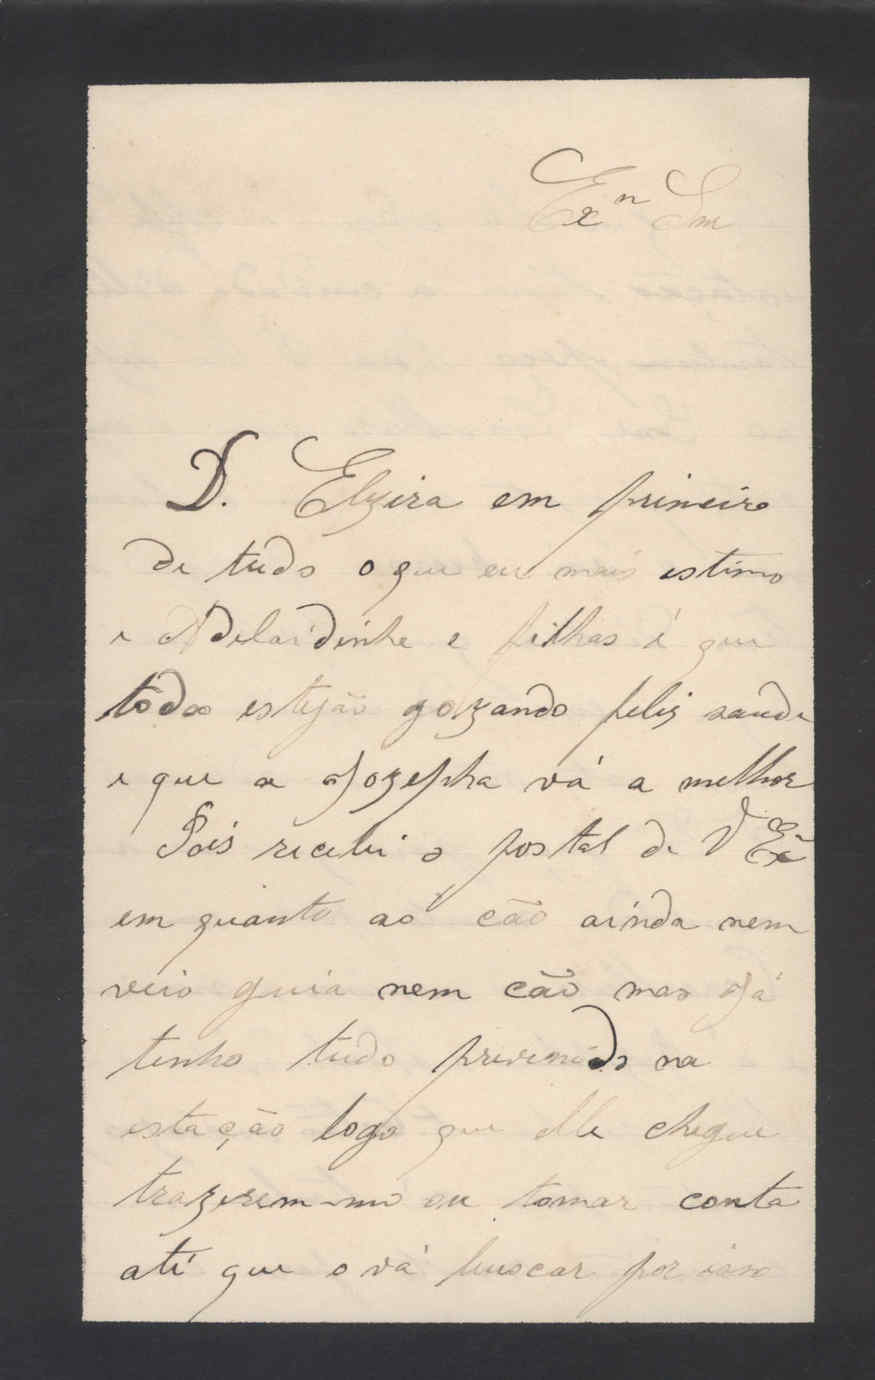 Exⁿ Sm
D. Elzira em primeiro
de tudo o que eu mais estimo
e Adelaidinhe e filhas é que
todos estejão gozando feliz saude
e que a Jozepha vá a melhor
Pois recebi o postal de V Ex
em quanto ao cão ainda nem
veio guia nem cão mas já
tenho tudo prevenido na
estação logo que elle chegue
trazerem-mo ou tomar conta
até que o vá buscar por isso